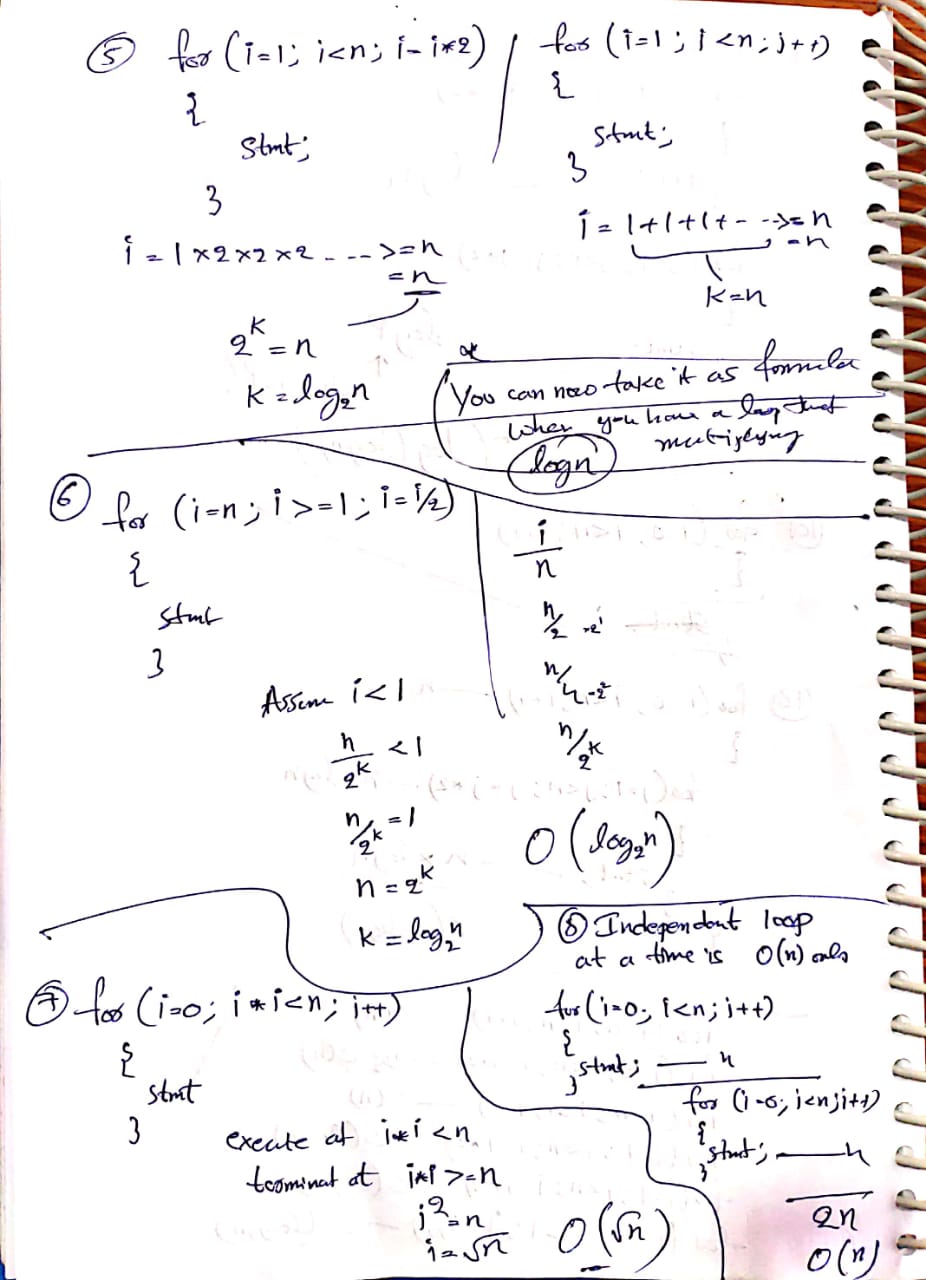 ⑤ for (i=1; i<n; i=i*2)
{
Stmt;
}
i = 1×2×2×2 - - - >=n
=n
2^k = n
k = log₂n
for (i=1; i<n; j++)
{
stmt;
}
i = 1+1+1+- - ->=n
=n
k=n
You can now take it as formula
when you have a loop that
multiplying
logn
⑥ for (i=n; i>=1; i=i/2)
{
stmt
}
Assume i<1
n/2^k <1
n/2^k =1
n = 2^k
k = log₂n
i
n
n/2 -2¹
n/4 -2²
n/2^k
O(log₂n)
⑦ for (i=0; i*i<n; i++)
{
stmt
}
execute at i*i <n
terminat at i*i >=n
i²=n
i=√n
O(√n)
⑧ Independent loop
at a time is O(n) only
for(i=0; i<n; i++)
{
stmt; — n
}
for (i=0; i<n; i++)
{
stmt; — n
}
2n
O(n)